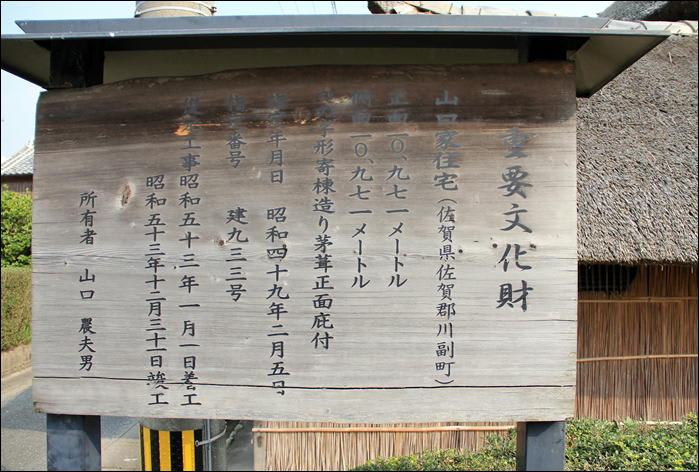 重要文化財
山口家住宅(佐賀県佐賀郡川副町)
正面一〇、九七一メートル
側面一〇、九七一メートル
字形寄棟造り茅葺正面庇付
年月日 昭和四十九年二月五号
番号 建九三三号
工事昭和五十三年一月一日着工
昭和五十三年十二月三十一日竣工
所有者 山口 農夫男